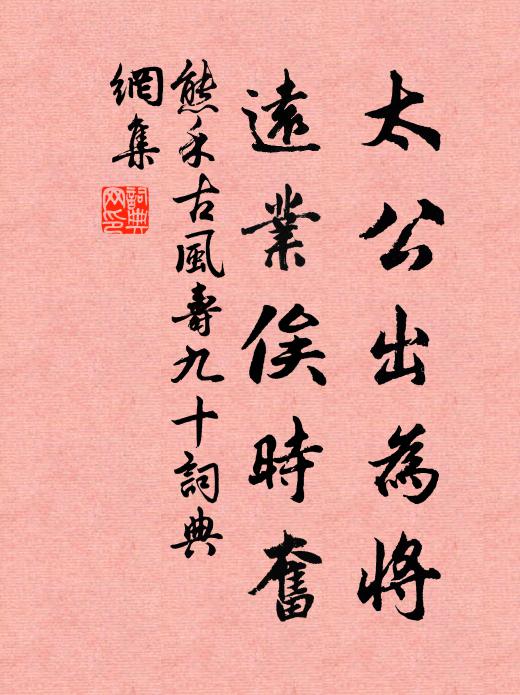 太公出為將
遠業俟時奮
熊禾古風壽九十詞典
網集
詞典網印